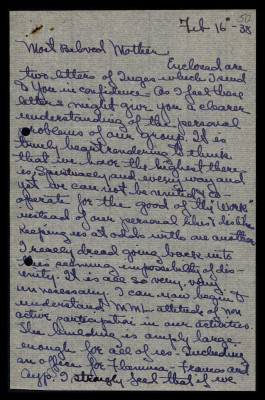 50
Feb 16" - 38
Most Beloved Mother
Enclosed are
two letters of Inges which I send
to You in confidence as I feel these
letters might give you a clearer
understanding of the personal
problems of our group. It is
truly heartrendering to think
that we have the highest there
is, Spiritually and every way and
yet we can not be united & co
operate for the good of the Work
instead of our personal likes & dislikes
keeping us at odds with one another
I really dread going back into
this seeming impossibility of dis-
unity. It is all so very, very
unnecessary. I can now begin to
understand MM. attitude of non
active participation in our activities.
The building is amply large
enough for all of us - Including
an office for Flamina - Frances and
I strongly feel that if we